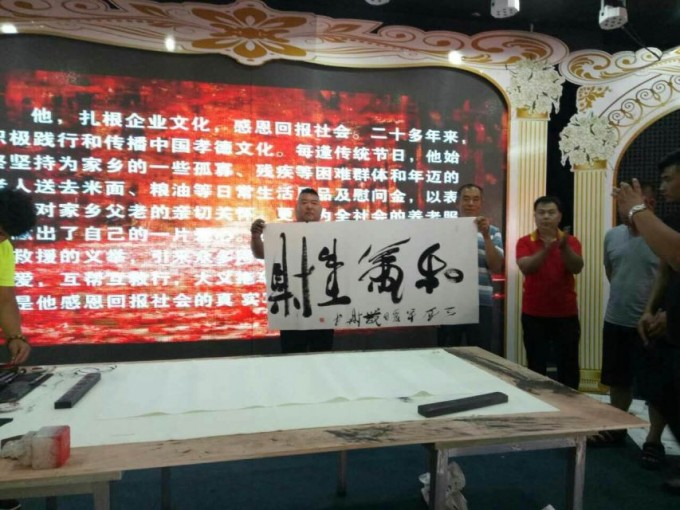 他，扎根企业文化，感恩回报社会。二十多年来，
积极践行和传播中国孝德文化。每逢传统节日，他始
终坚持为家乡的一些孤寡、残疾等困难群体和年迈的
老人送去米面、粮油等日常生活用品及慰问金，以表
对家乡父老的亲切关怀 为全社会的养老服
献出了自己的一片
救援的义举，引来众多
爱，互帮互救行，大义
是他感恩回报社会的真实
和氣生財